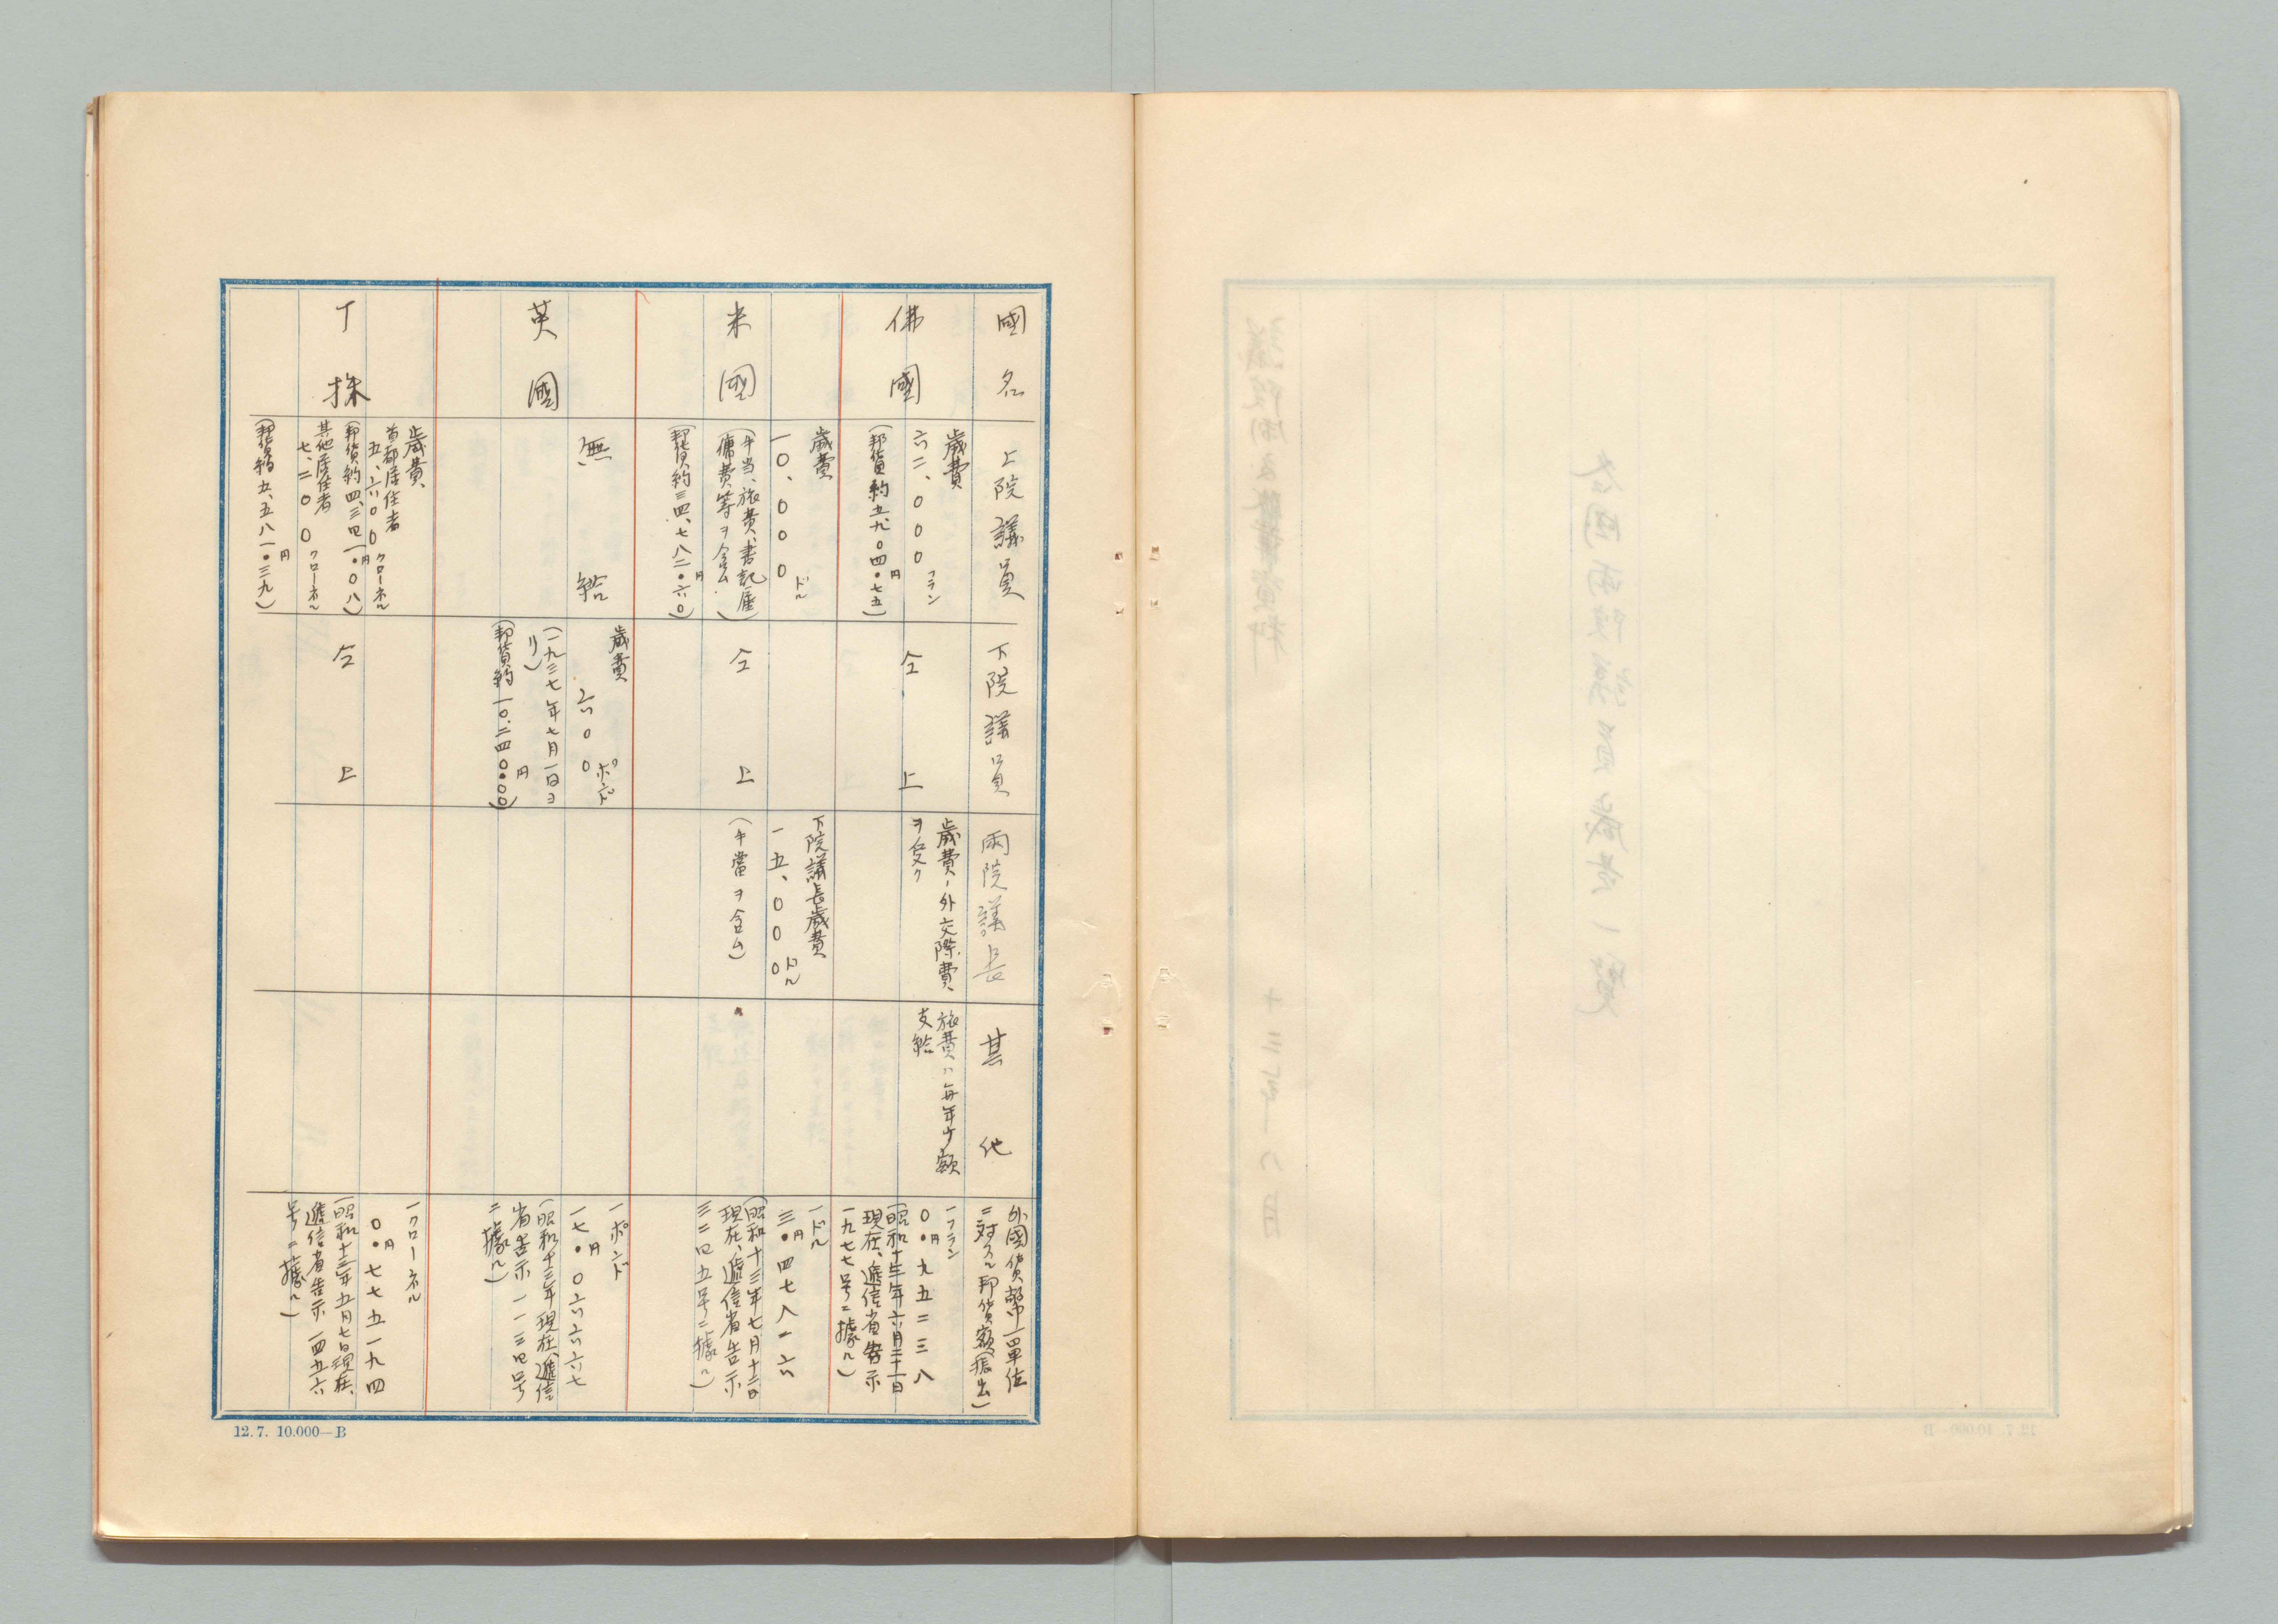 國名
上院議員
下院議員
兩院議長
其他
外國貨幣一單位
ニ対スル邦貨額(振出)
佛國
歳費
六二、〇〇〇フラン
(邦貨約五九〇四・七五円)
仝上
歳費ノ外交際費
ヲ受ク
旅費ハ毎年少額
支給
一フラン
〇・九五二三八円
(昭和十三年六月二十一日
現在、遞信省告示
一九七七号ニ據ル)
米國
歳費
一〇、〇〇〇ドル
(手当、旅費、書記雇
傭費等ヲ含ム)
(邦貨約三四、七八二・六〇円)
仝上
下院議長歳費
一五、〇〇〇ドル
(手當ヲ含ム)
一ドル
三・四七八二六円
(昭和十三年七月十二日
現在、遞信省告示
三二四五号ニ據ル)
英國
無給
歳費
六〇〇ポンド
(一九三七年七月一日ヨ
リ)
(邦貨約一〇、二四〇・〇〇円)
一ポンド
一七・〇六六六七円
(昭和十三年現在、遞信
省告示一一三四号
ニ據ル)
丁抹
歳費、
首都居住者
五、六〇〇クローネル
(邦貨約四、三四一・〇八円)
其他居住者
七、二〇〇クローネル
(邦貨約五、五八一・三九円)
仝上
一クローネル
〇・七七五一九四円
(昭和十三年五月七日現在、
遞信省告示一四五六
号ニ據ル)
12.7. 10.000—B